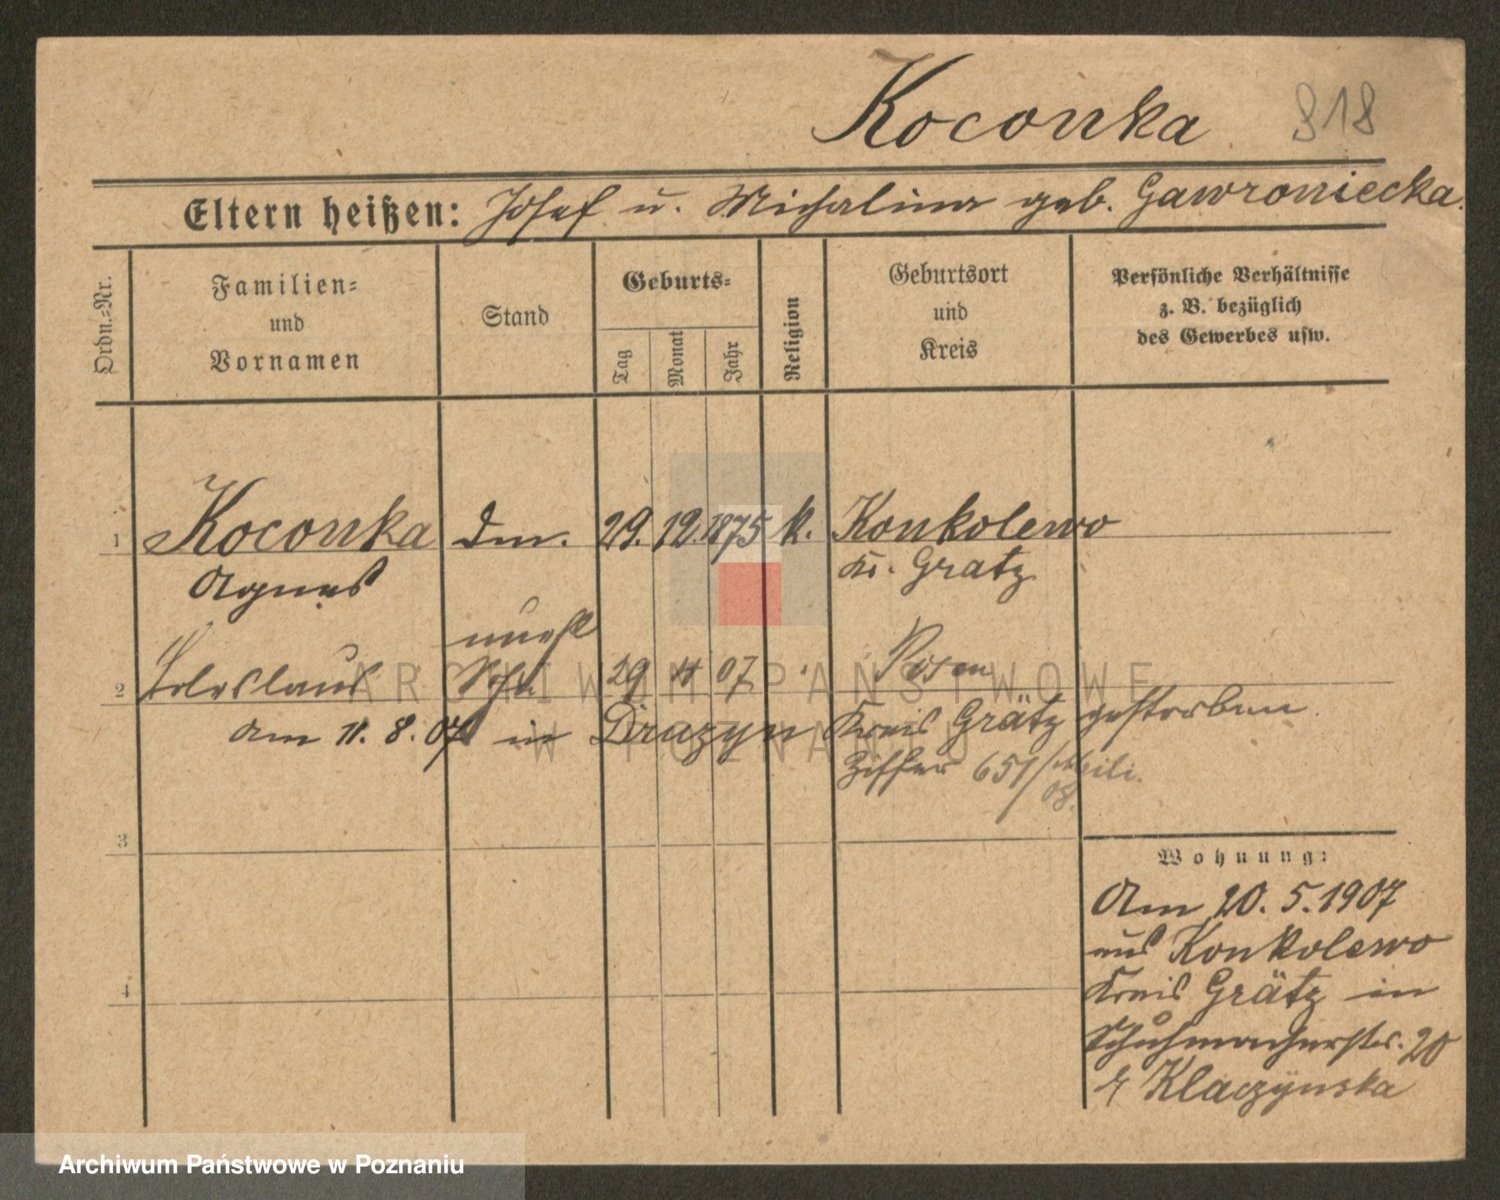 Koconka 818
Eltern heißen: Josef u. Michalina geb. Gawroniecka.
Ordn.-Nr.
Familien-
und
Vornamen
Stand
Geburts-
Tag
Monat
Jahr
Religion
Geburtsort
und
Kreis
Persönliche Verhältnisse
z. B. bezüglich
des Gewerbes usw.
1 Koconka Dm. 29. 12. 1875 k. Konkolewo
Agnes Kr. Grätz
unehl
2 Boleslaus Sohn 29 4 07 Posen
am 11. 8. 07 in Drazyn Kreis Grätz gestorben.
Ziffer 651/
08.
3
4
Wohnung:
Am 20. 5. 1907
aus Konkolewo
Kreis Grätz in
Schuhmacherstr. 20
b/ Klaczynska
ARCHIWUM PAŃSTWOWE
W POZNANIU
Archiwum Państwowe w Poznaniu